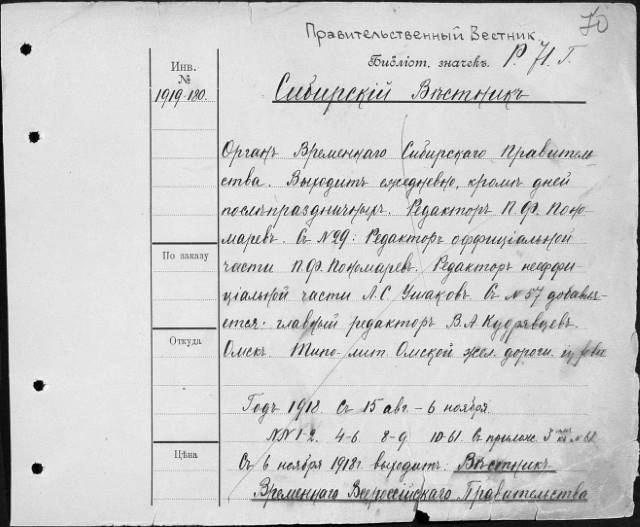 Правительственный Вестник.
70
Библіот. значекъ. Р. 71. Г.
Инв.
№
1919-180.
Сибирскій Вѣстникъ
Органъ Временнаго Сибирскаго Правитель-
ства. Выходитъ ежедневно, кромѣ дней
послѣпраздничныхъ. Редакторъ П. Ф. Поно-
маревъ. Съ №29: Редакторъ оффиціальной
По заказу
части П. Ф. Пономаревъ. Редакторъ неоффи-
ціальной части Л. С. Ушаковъ. Съ № 57 добавля-
ется: главный редакторъ В. А. Кудрявцевъ.
Откуда
Омскъ. Типо-лит. Омской жел. дороги. in folio
Годъ 1918. Съ 15 авг. - 6 ноября.
NN 1-2. 4-6. 8-9. 10-61. Съ прилож. 3 къ № 61.
Цѣна
Съ 6 ноября 1918 г. выходитъ: Вѣстникъ
Временнаго Всероссійскаго Правительства